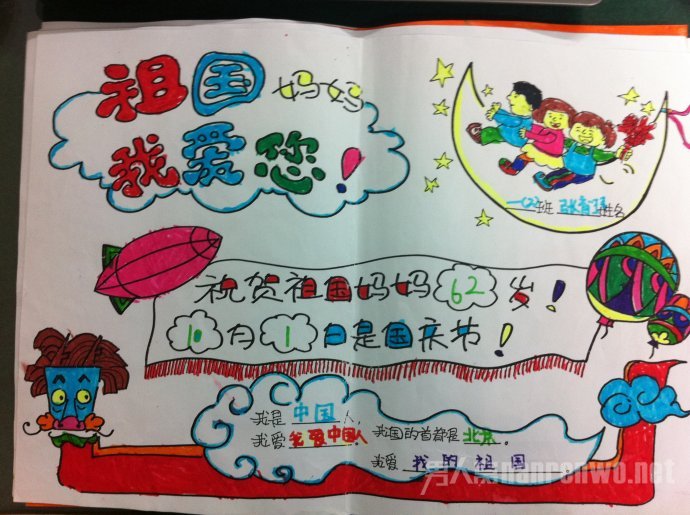 祖国妈妈
我爱您！
一(2)班 姓名
祝贺祖国妈妈62岁！
10月1日是国庆节！
我是中国人，
我爱我爱中国人 我国的首都是北京。
我爱我的祖国
nanrenwo.net